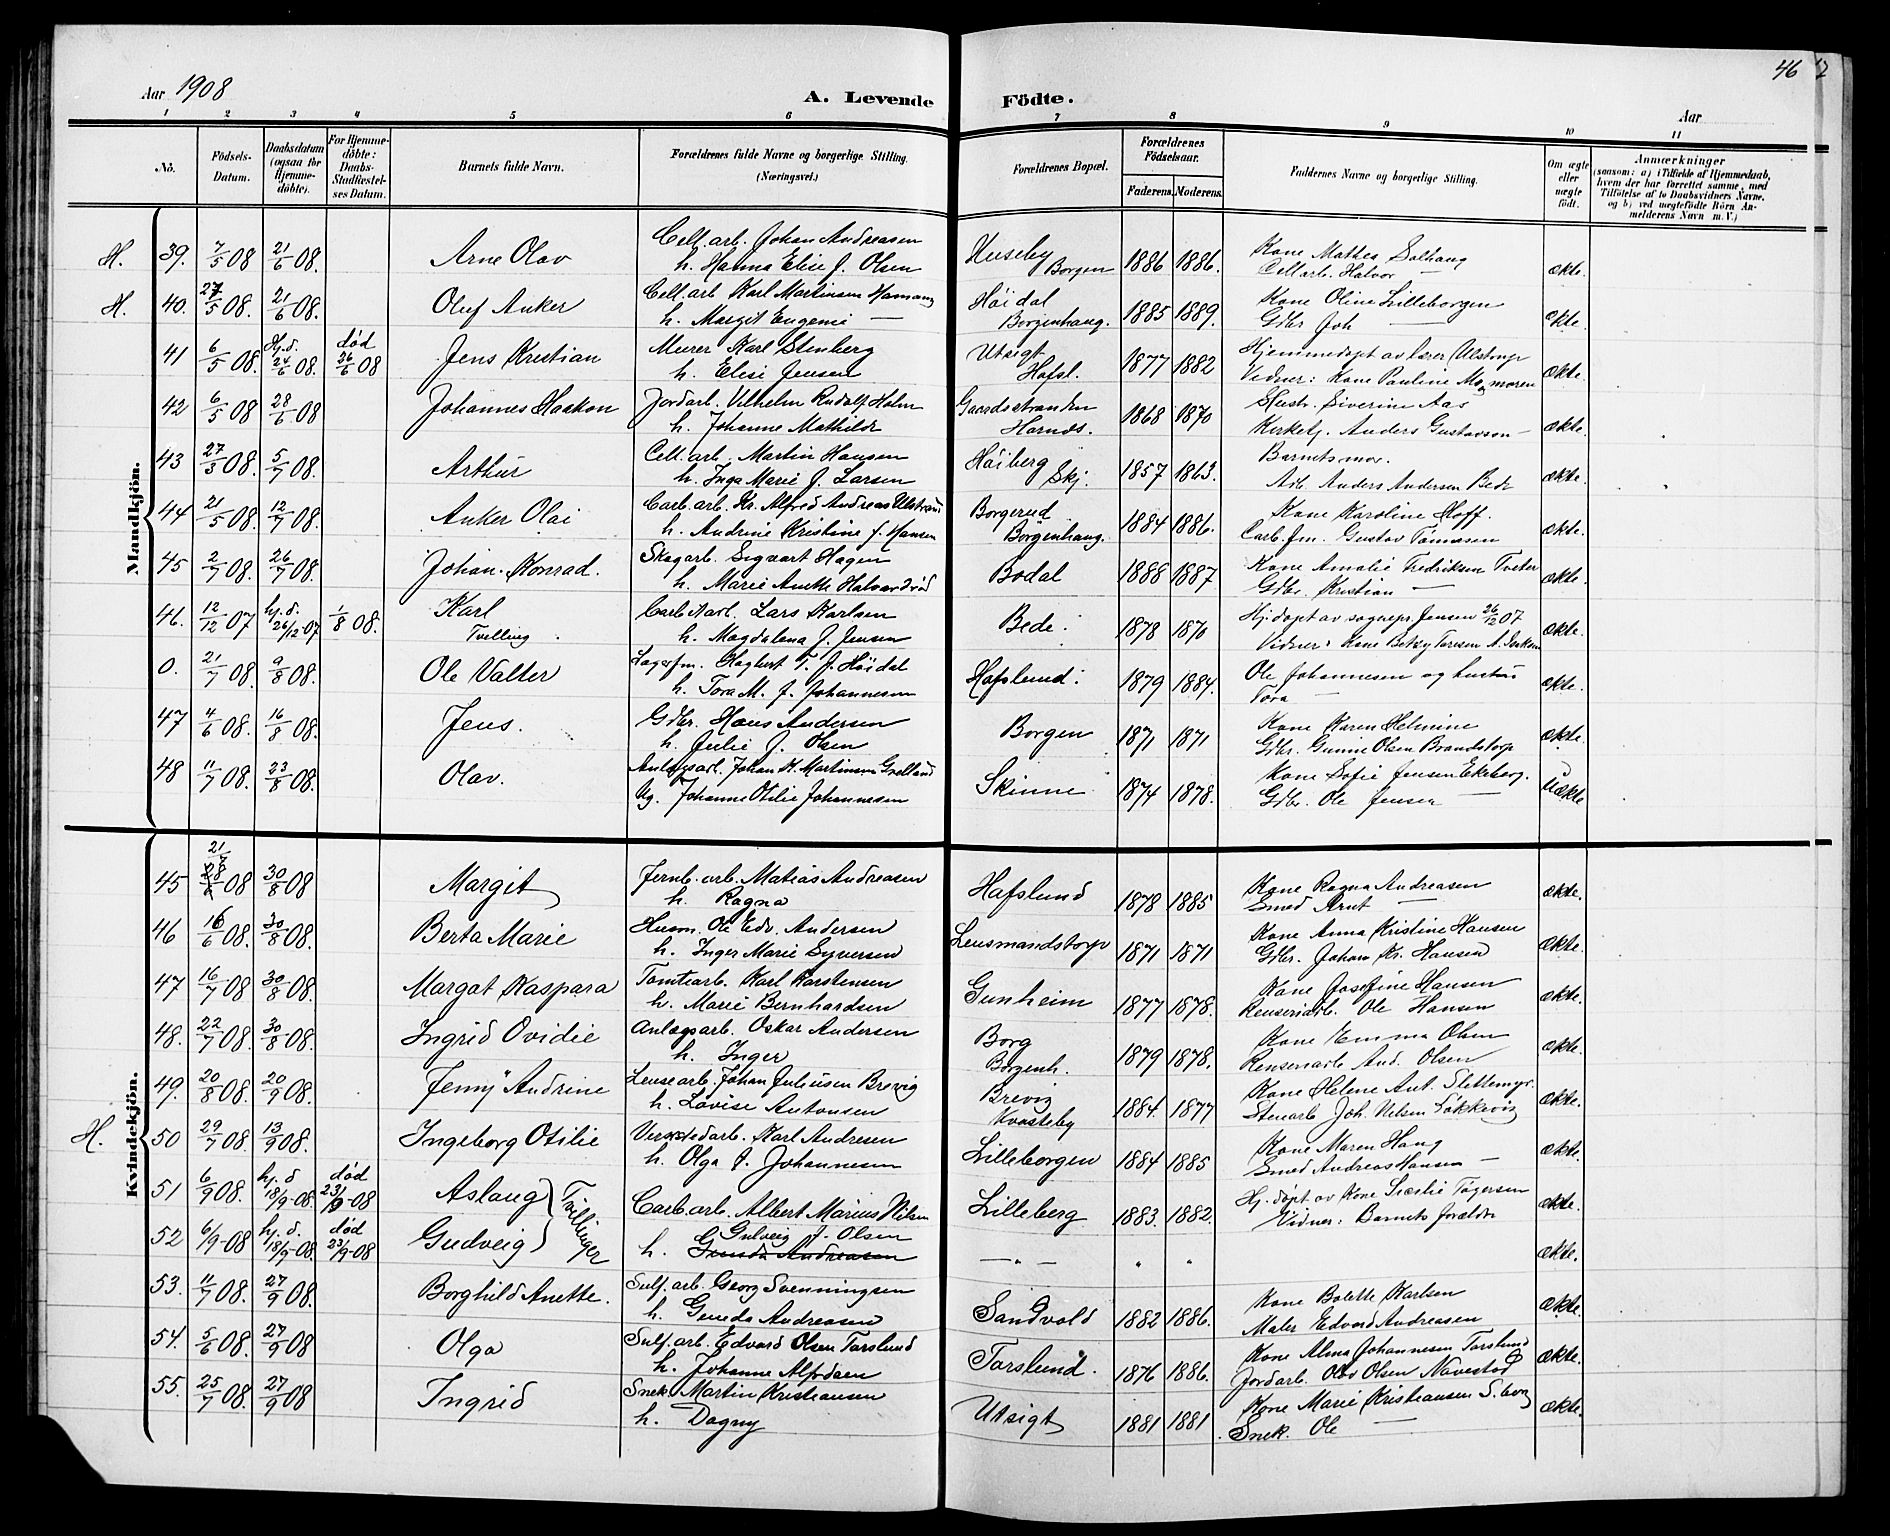 Aar 1908
A. Levende Födte.
Aar
46
1 2 3 4 5 6 7 8 9 10 11
No.
Födsels-Datum.
Daabsdatum (ogsaa for Hjemmedöbte).
For Hjemmedöbte: Daabs-Stadfæstelses Datum.
Barnets fulde Navn.
Forældrenes fulde Navne og borgerlige Stilling. (Næringsvei.)
Forældrenes Bopæl.
Forældrenes Födselsaar.
Faderens. Moderens.
Faddernes Navne og borgerlige Stilling.
Om ægte eller uægte födt.
Anmærkninger
(saasom: a) i Tilfælde af Hjemmedaab, hvem der har forrettet samme, med Tilföielse af to Daabsvidners Navne, og b) ved uægtefödte Börn Anmelderens Navn m. V.)
Mandkjön.
H. 39. 7/5 08 21/6 08. Arne Olav Cell.arb. Johan Andreasen Huseby 1886 1886. Kone Mathea Solhaug ekte.
h. Hanna Elise f. Olsen Borgen Cell.arb. Halvor —
H. 40. 27/5 08. 21/6 08. Oluf Anker Cell.arb. Karl Martinsen Hamang Höidal 1885 1889. Kone Oline Lilleborgen ekte.
h. Margit Eugenie — Borgenhaug. Gdbr Joh —
41 6/5 08. Hj.d. 24/6 08. død 26/6 08 Jens Kristian Murer Karl Stenberg Utsigt 1877 1882 Hjemmedøpt av lærer Ulstrup ekte.
h. Elise Jensen Hafsl. Vidner: Kone Pauline
42 6/5 08 28/6 08 Johannes Haakon Jordarb. Vilhelm Rudolf Holm Gaardsstranden 1868 1870 Hustr. Siverine Aas ekte.
h. Johanne Mathilde Hornds. Kirketj. Anders Gustavson —
43 27/5 08. 5/7 08. Arthur Cell.arb. Martin Hansen Höiberg 1857 1863. Barnets mor. ekte.
h. Inga Marie f. Larsen Skj. Arb. Anders Andersen Bede
44 21/5 08. 12/7 08. Anker Olai Carb.arb. Kr. Alfred Andreas Ulstrand Borgerud 1884 1886. Kone Karoline Hoff. ekte.
h. Andrine Kristine f. Hansen Borgenhaug. Carb.fm. Gustav Tomasen
45 2/7 08. 26/7 08. Johan Konrad. Skogarb. Sigvart Hagen Bodal 1888 1887. Kone Amalie Fredriksen Tveter ekte.
h. Marie Anette Halvordsrød Gdbr. Kristian —
46. 12/12 07 hj.d. 26/12 07 1/8 08. Karl Carb.arb. Lars Karlsen Bede 1878 1870 Hj.døpt av sognepr. Jensen 26/12 07 ekte.
Tvilling h. Magdalena f. Jensen Vidner: Kone Betzy
0. 21/7 08. 9/8 08. Ole Valter Lagerfm. Hagbert T. f. Höidal Hafslund. 1879 1884. Ole Johannesen og hustru ekte.
h. Tora M. f. Johannesen Tora —
47 4/6 08. 16/8 08. Jens. Gdbr. Hans Andersen Borgen 1871 1871 Kone Karen Helmine ekte.
h. Julie f. Olsen Gdbr. Gunne Olsen Brandstorp
48 11/7 08. 23/8 08. Olav. Anlægsarb. Johan H. Martinsen Skinne 1874 1878. Kone Sofie Jensen Ekeberg. Uekte
Ug. Johanne Otilie Johannesen Gdbr. Ole Jensen —
Kvindekjön.
21/7
45 28/6 08 30/8 08 Margit Jernb.arb. Matias Andreasen Hafslund 1878 1885 Kone Ragna Andreasen ekte.
h. Ragna Smed Arnt —
46 16/6 08. 30/8 08. Berta Marie Husm. Ole Edv. Andersen Lensmandstorp 1871 1871 Kone Anna Kristine Hansen ekte.
h. Inger Marie Syversen Gdbr. Johan Kr. Hansen
47 16/7 08 30/8 08. Margot Kaspara Tomtearb. Karl Karstensen Gunheim 1877 1878. Kone Josefine Hansen ekte.
h. Marie Bernhardsen Renseriarb. Ole Hansen
48. 22/7 08. 30/8 08. Ingrid Ovidie Anlægsarb. Oskar Andersen Borg 1879 1878. Kone Emma Olsen ekte.
h. Inger Borgenh. Renseriarb And. Olsen
49. 20/8 08. 20/9 08. Jenny Andrine Lensearb. Johan Juliusen Brevig Brevig 1884. 1877 Kone Helene Ant. Slettemyr. ekte.
h. Lovise Antonsen Kvasteby Stenarb Joh. Nilsen
H. 50 29/7 08. 13/9 08. Ingeborg Otilie Verkstedarb. Karl Andresen Lilleborgen 1884 1885 Kone Maren Haug ekte.
h. Olga f. Johannesen Smed Andreas Hansen —
51 6/9 08. hj.d 18/9-08. død 23/9-08 Aslaug Tvillinger Carb.arb. Albert Marius Nilsen Lilleberg 1883. 1882. Hj.døpt av Kone Tøgersen ekte.
Vidner: Barnets forældre
52 6/9-08 hj.d. 18/9-08. død 23/9-08 Gudveig h. Gulveig f. Olsen — " — " " ekte.
Gunda Andreasen
53. 11/7 08. 27/9 08. Borghild Anette. Sulf.arb. Georg Svenningsen Sandvold 1882 1886. Kone Bolette Karlsen ekte.
h. Gunda Andreasen Maler Edvard Andreasen
54. 5/6 08. 27/9 08. Olga Sulf.arb. Edvard Olsen Torslund Torslund. 1876 1886. Kone Alma Johannesen Torslund ekte.
h. Johanne Alfredsen Jordarb. Olav Olsen Navestad
55. 25/7 08. 27/9 08 Ingrid Snek. Martin Kristiansen Utsigt 1881 1881 Kone Marie Kristiansen S.borg ekte.
h. Dagny Snek. Ole —